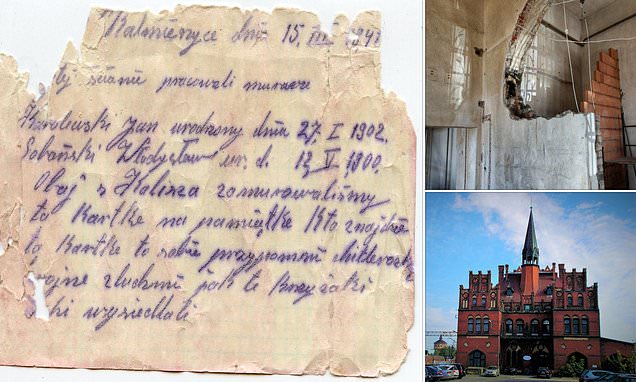 Kalmierzyce dnia 15, III 1941
tej ścianie pracowali murarze
Karolewski Jan urodzony dnia 27. I 1902,
Sobański Władysław ur. d. 12, V, 1900.
Obaj z Kalisza zamurowaliśmy
tą kartkę na pamiątkę Kto znajdzie
tą kartkę to sobie przypomni hitlerowską
wojnę z ludźmi jak te krzyżaki
wysiedlali